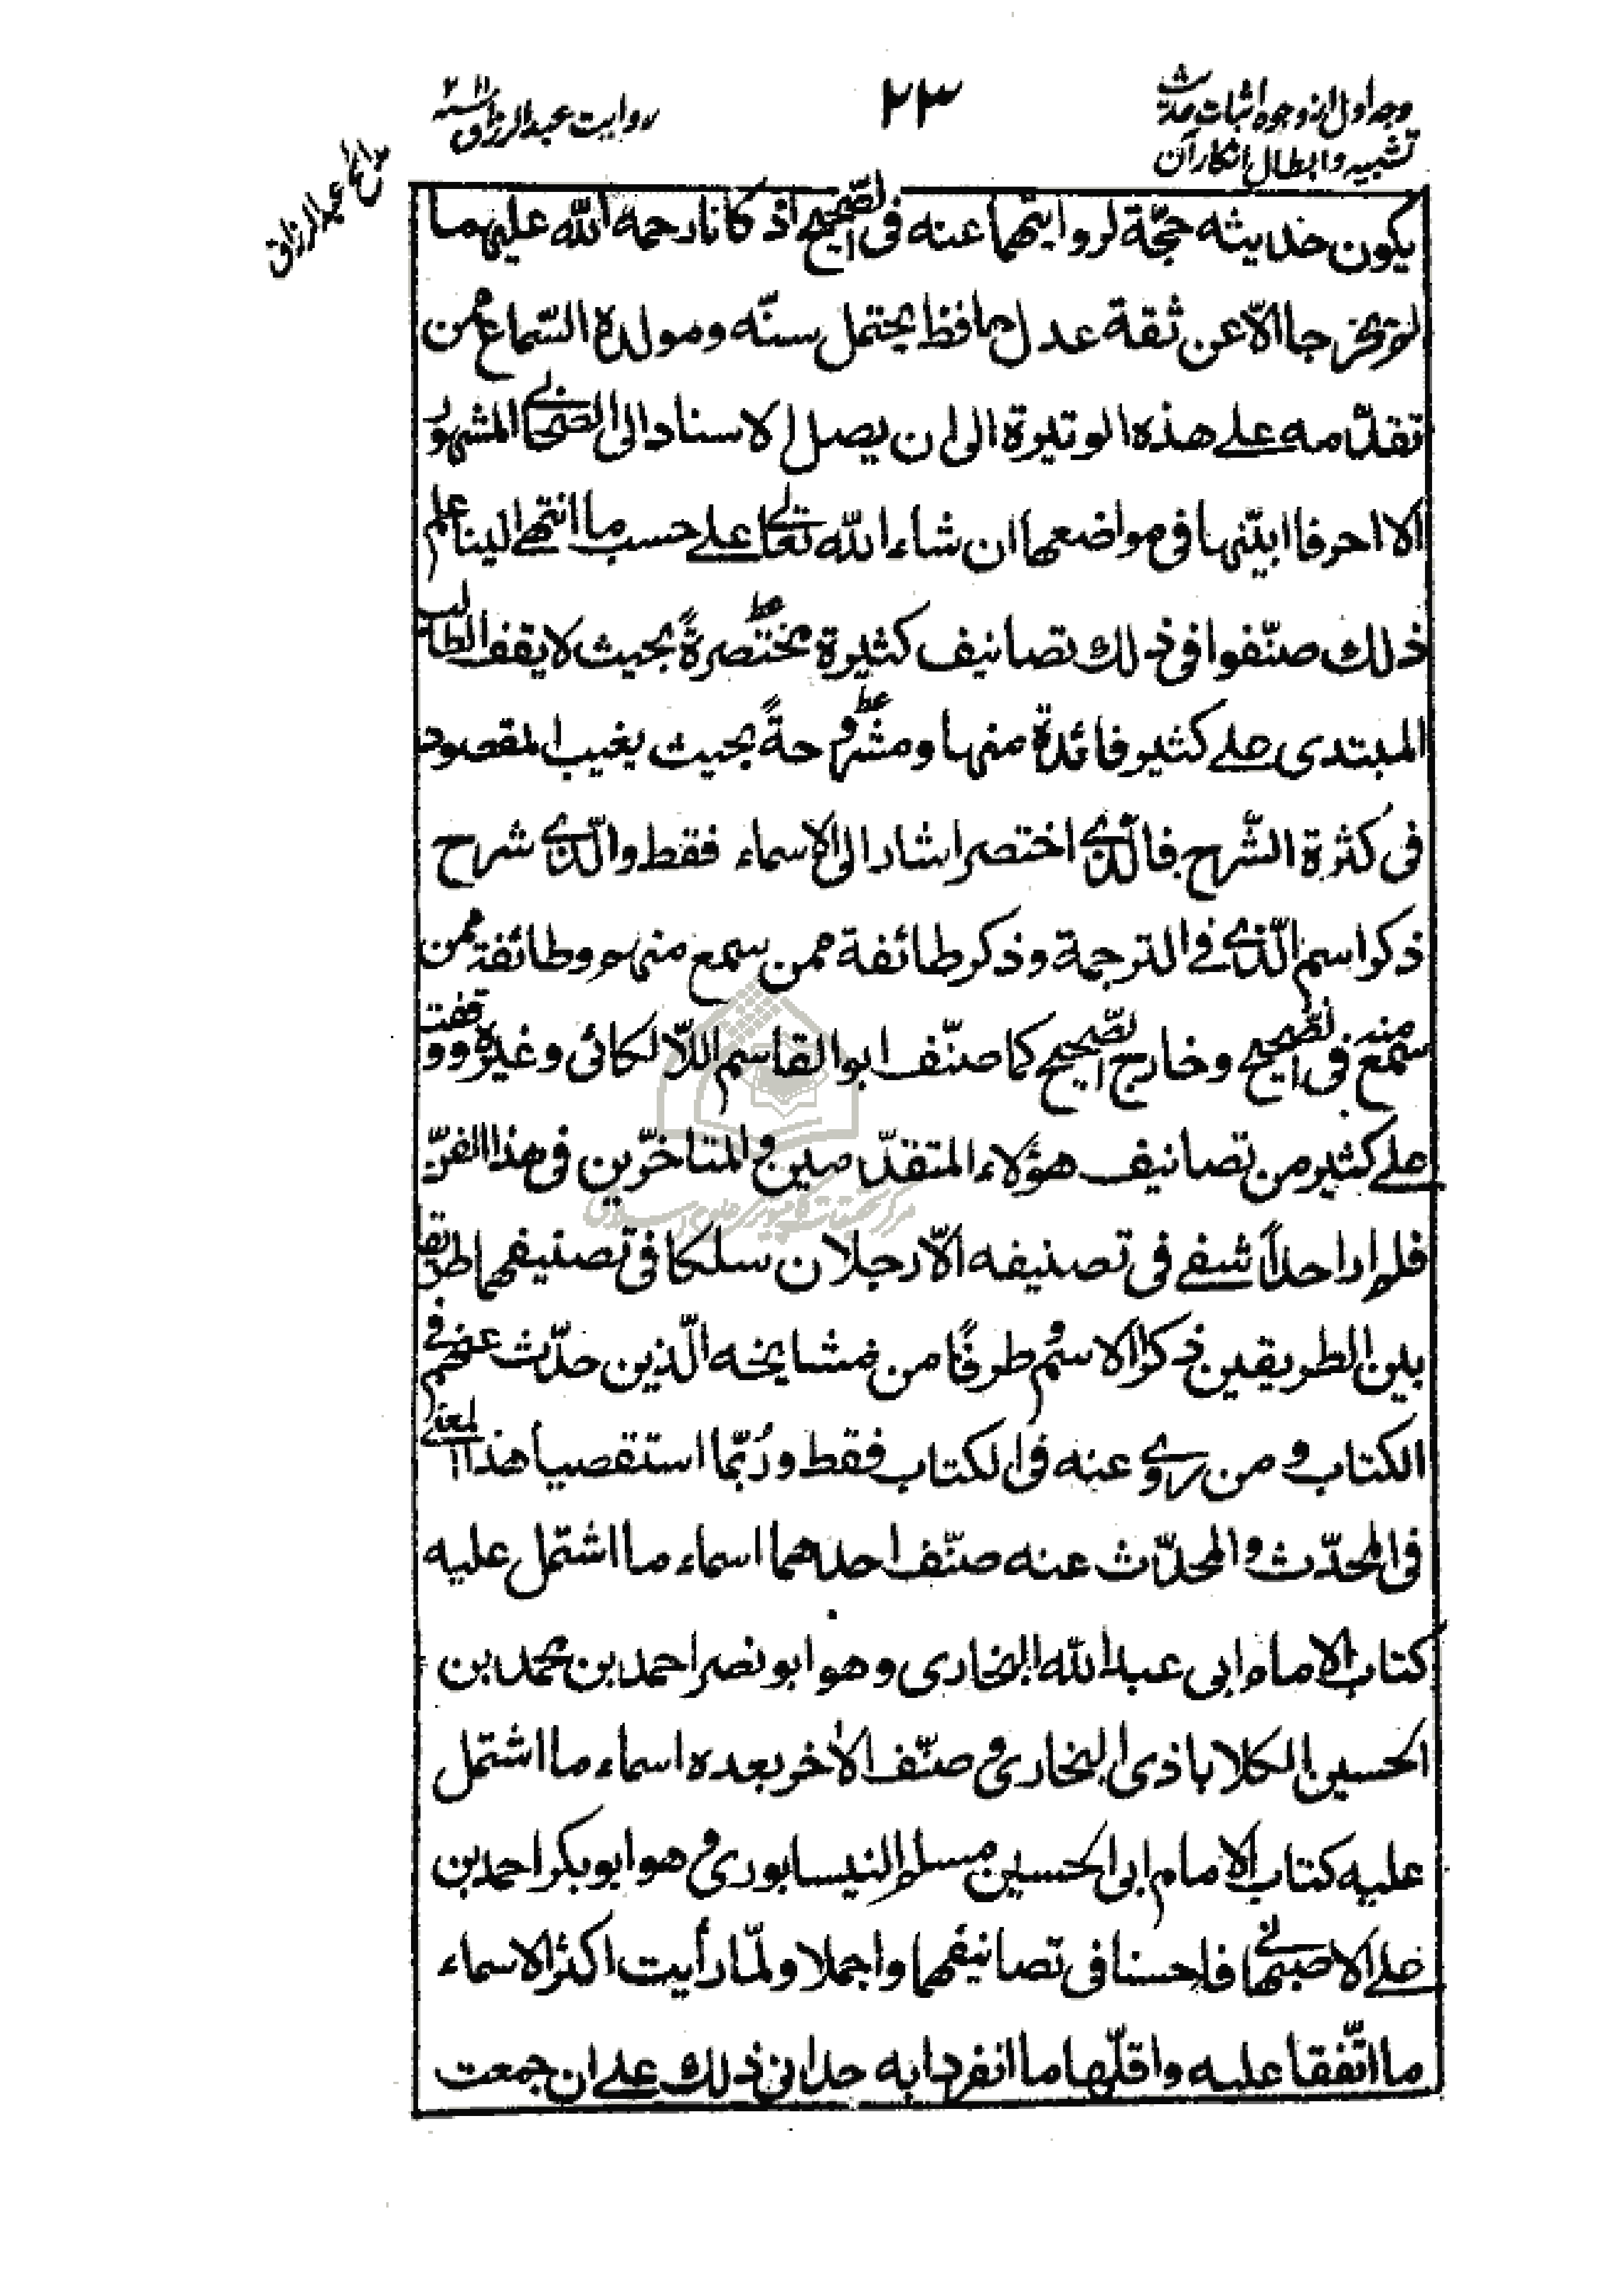 وجه اول از وجوه اثبات حدیث
تشبیه و ابطال انکار آن
۲۳
روایت عبدالرزاق
عبدالرزاق
یکون حدیثه حجّة لروایتهما عنه فی الصّحیح اذ کانا رحمة الله علیهما
لم یخرجا الّا عن ثقة عدل حافظ یحتمل سنّه و مولده السّماع ممن
تقدّمه علے هذه الوتیرة الی ان یصل الاسناد الی الصّحابی المشهور
الا احرفا ابیّنها فی مواضعها ان شاء الله تعالی علے حسب ما انتهے الینا علم
ذلك صنّفوا فی ذلك تصانیف کثیرة مختصرةً بحیث لا یقف الطالب
المبتدی علے کثیر فائدة منها و مشروحةً بحیث یغیب المقصود
فی کثرة الشّرح فالّذی اختصر اشار الی الاسماء فقط والّذی شرح
ذکر اسم الّذی فی الترجمة و ذکر طائفة ممن سمع منهم و طائفة ممن
سمع منه فی الصّحیح و خارج الصّحیح کما صنّف ابو القاسم اللّا لکائی و غیره و وقفت
علے کثیر من تصانیف هؤلاء المتقدّمین و المتاخّرین فی هذا الفنّ
فلم ار احداً شفے فی تصنیفه الّا رجلان سلکا فی تصنیفهما طریقا
بین الطریقین ذکرا الاسم و طرفًا من مشایخه الّذین حدّث عنهم فے
الکتاب و من روی عنه فی الکتاب فقط و رُبّما استقصیا هذا المعنے
فی المحدّث و المحدّث عنه صنّف احدهما اسماء ما اشتمل علیه
کتاب الامام ابی عبد الله البخاری و هو ابو نصر احمد بن محمد بن
الحسین الکلاباذی البخاری و صنّف الاٰخر بعده اسماء ما اشتمل
علیه کتاب الامام ابی الحسین مسلم النیسابوری و هو ابو بکر احمد بن
علے الاصبهانی فاحسنا فی تصانیفهما و اجملا و لمّا رأیت اکثر الاسماء
ما اتّفقا علیه و اقلّها ما انفردا به حدانی ذلك علے ان جمعت
مرکز تحقیقات کامپیوتری علوم اسلامی